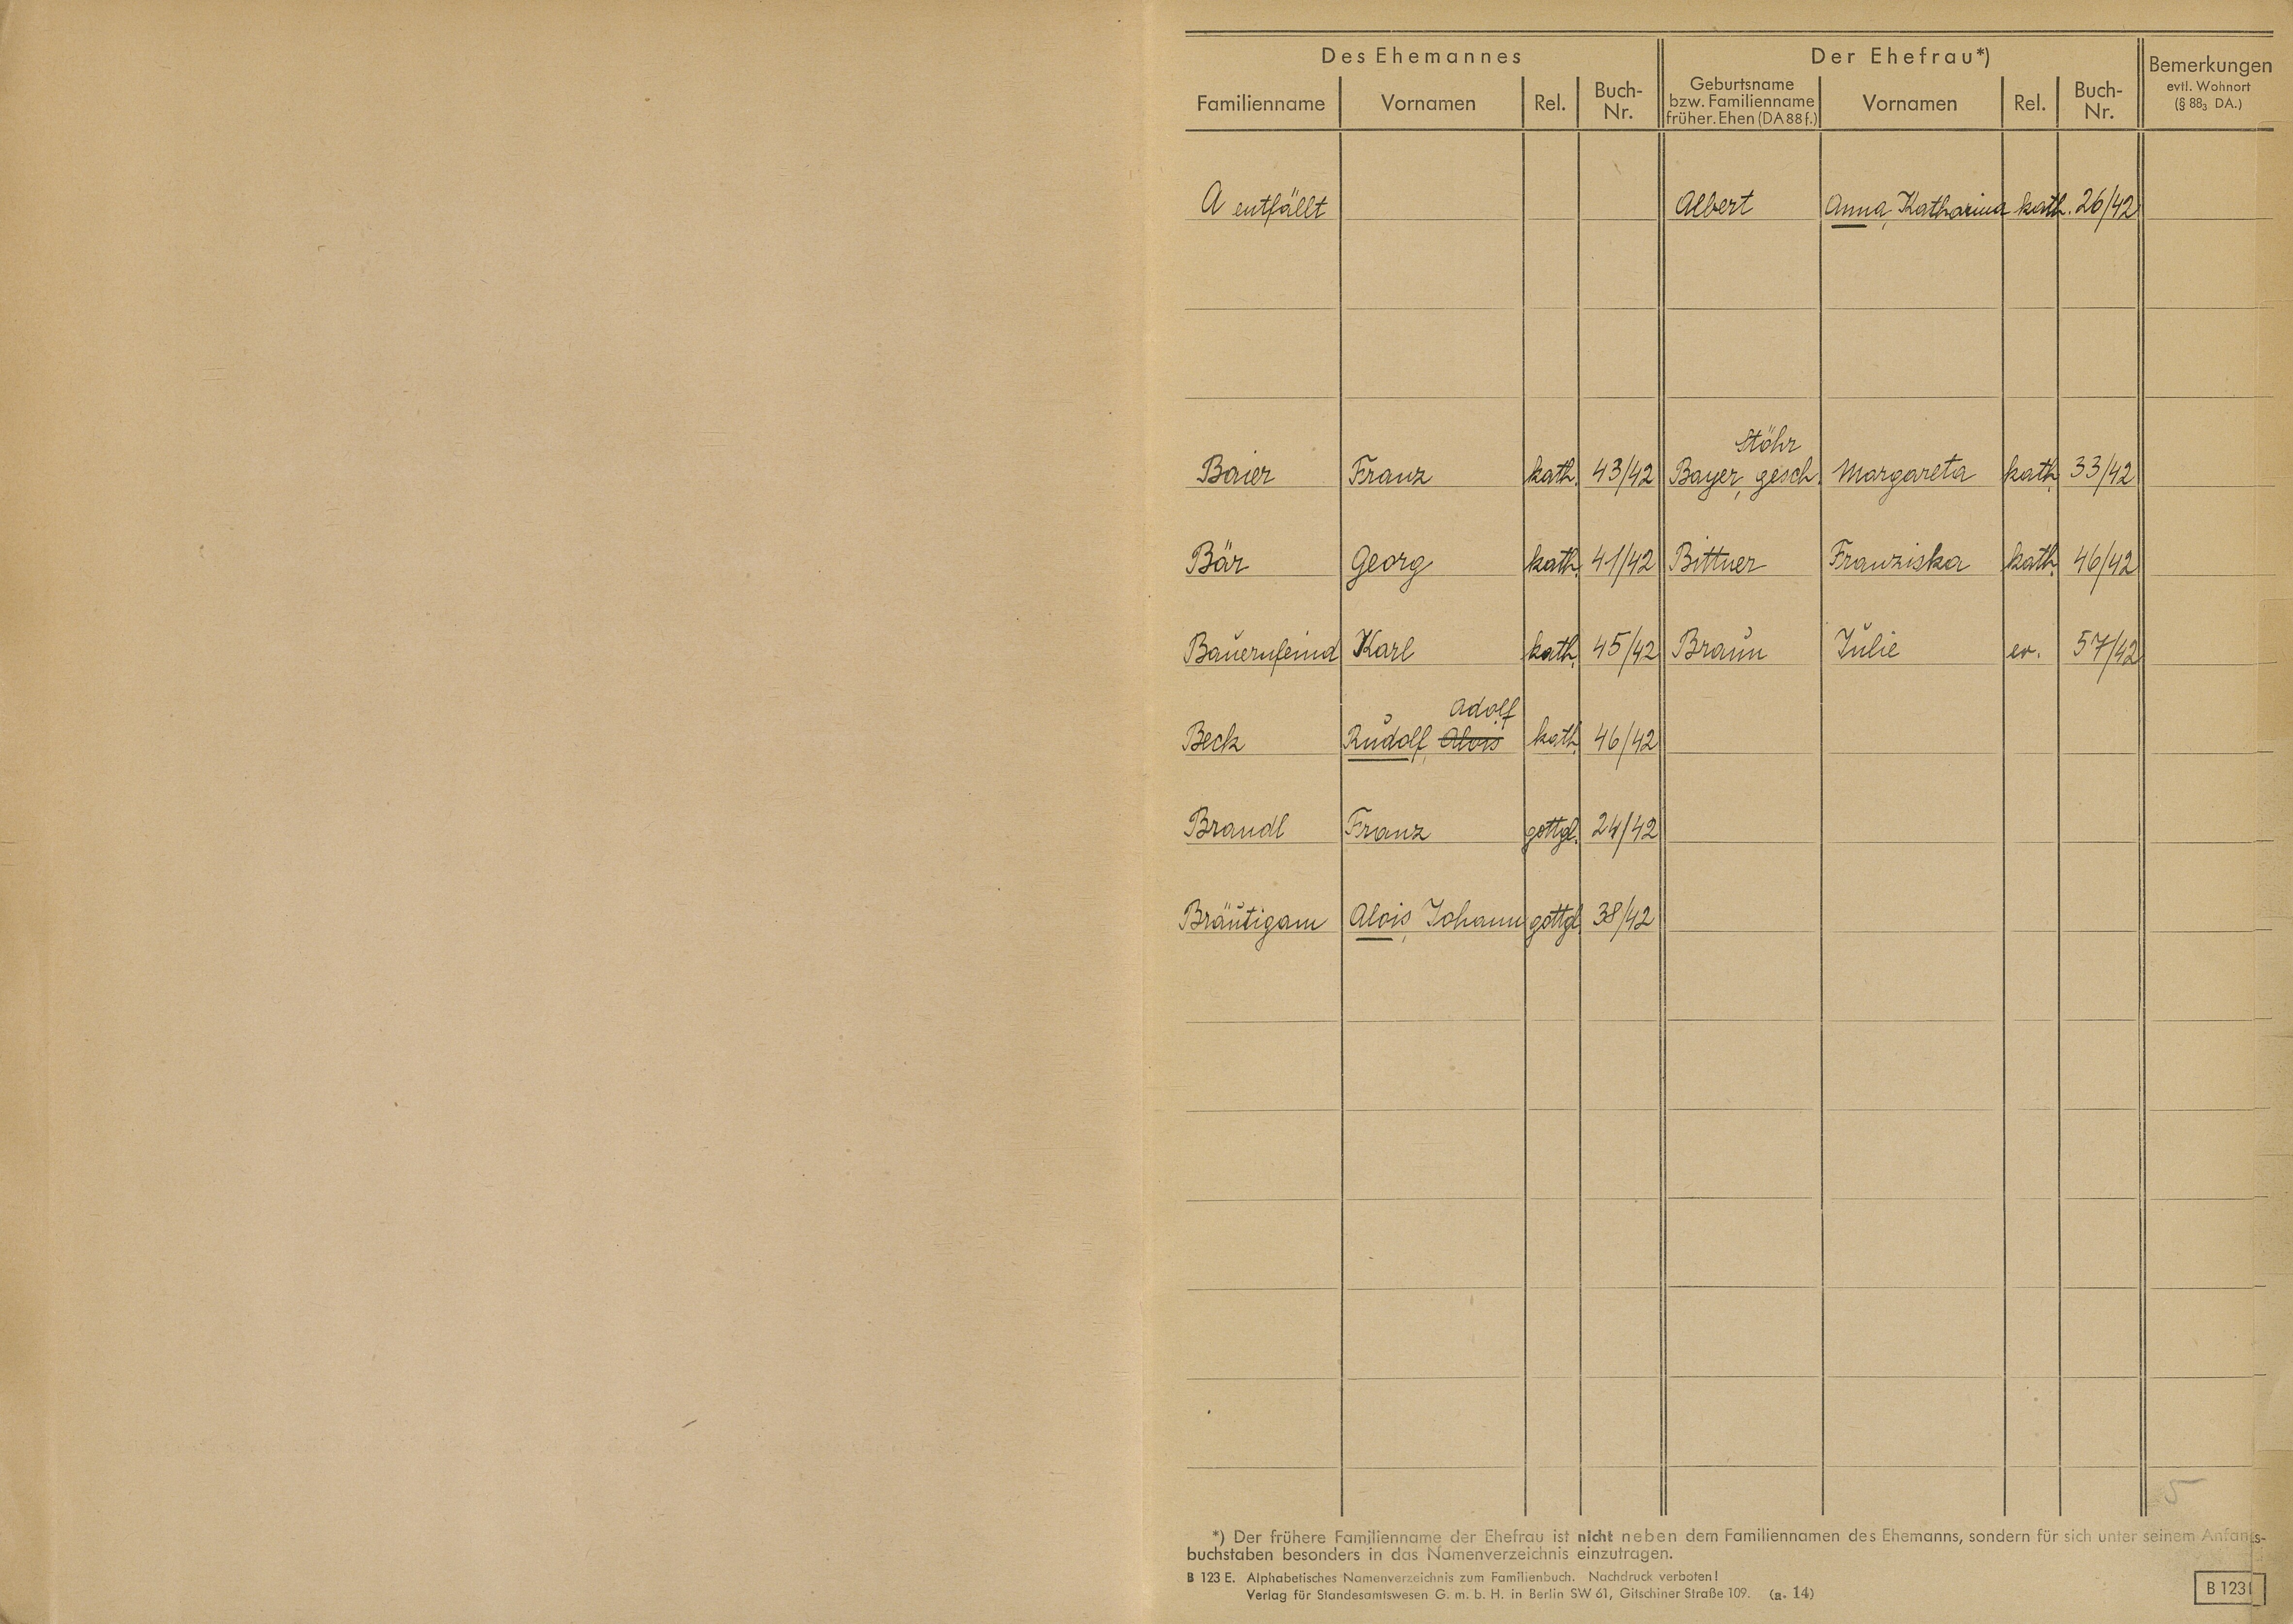 Des Ehemannes Der Ehefrau*) Bemerkungen evtl. Wohnort (§ 88₃ DA.)
Familienname Vornamen Rel. Buch-Nr. Geburtsname bzw. Familienname früher. Ehen (DA 88 f.) Vornamen Rel. Buch-Nr.
A entfällt Albert Anna, Katharina kath. 26/42
Stöhr
Baier Franz kath. 43/42 Bayer, gesch. Margareta kath. 33/42
Bär Georg kath. 41/42 Bittner Franziska kath. 46/42
Bauernfeind Karl kath. 45/42 Braun Julie ev. 57/42
Adolf
Beck Rudolf, Alois kath. 46/42
Brandl Franz gottgl. 24/42
Bräutigam Alois, Johann gottgl. 38/42
5
*) Der frühere Familienname der Ehefrau ist nicht neben dem Familiennamen des Ehemanns, sondern für sich unter seinem Anfangs-
buchstaben besonders in das Namenverzeichnis einzutragen.
B 123 E. Alphabetisches Namenverzeichnis zum Familienbuch. Nachdruck verboten!
Verlag für Standesamtswesen G. m. b. H. in Berlin SW 61, Gitschiner Straße 109. (a. 14)
B 123